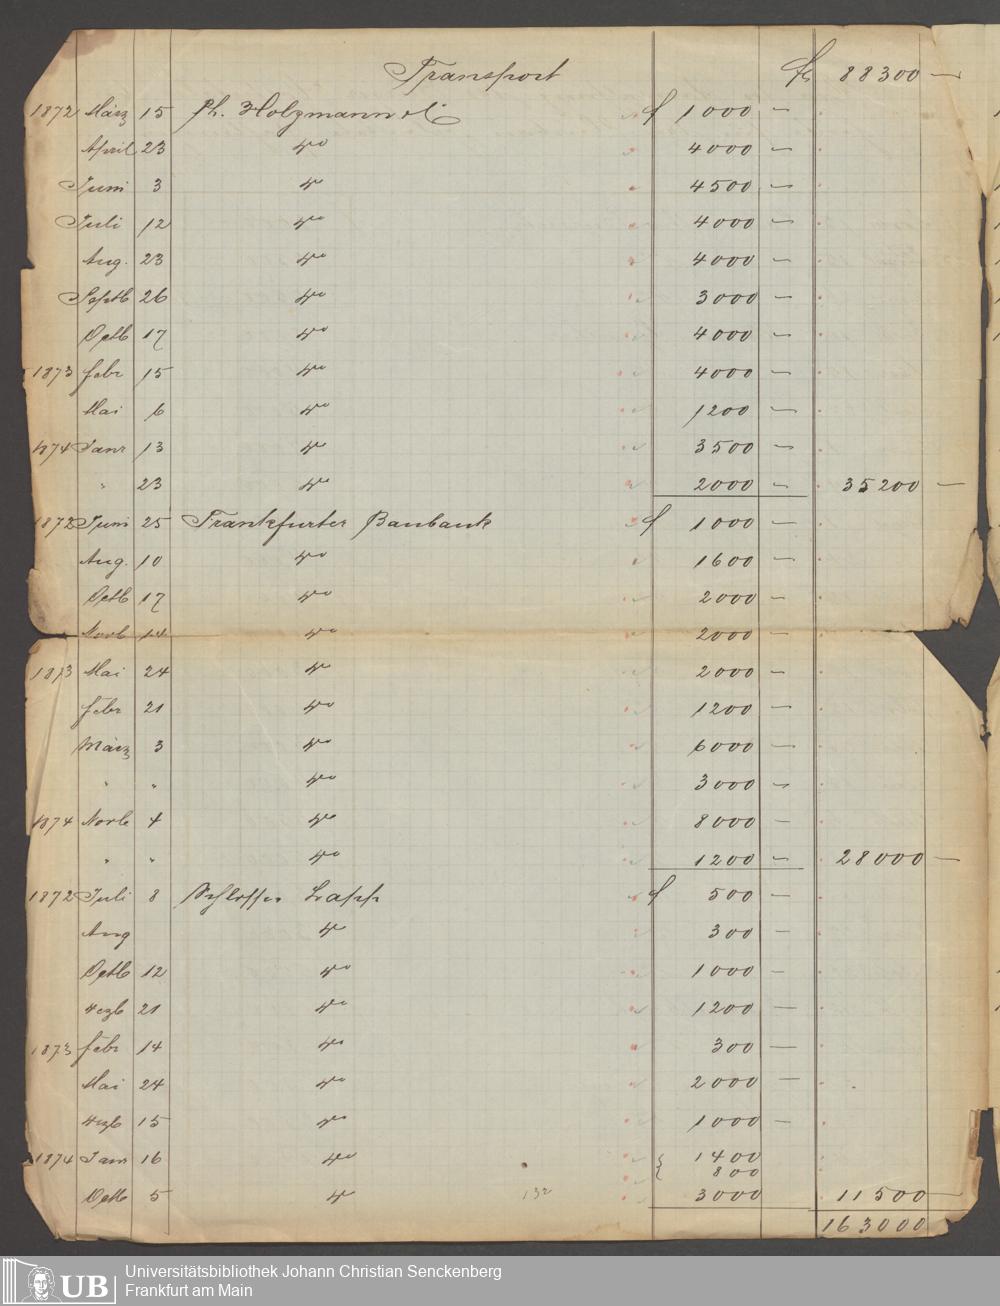 Transport fl 88300 —
1872 März 15 Ph. Holzmann & C f 1000 —
April 23 do 4000 —
Juni 3 do 4500 —
Juli 12 do 4000 —
Aug. 23 do 4000 —
Septb 26 do 3000 —
Octb 17 do 4000 —
1873 Febr 15 do 4000 —
Mai 6 do 1200 —
1874 Janr 13 do 3500 —
" 23 do 2000 — 35200 —
1872 Juni 25 Frankfurter Baubank f 1000 —
Aug. 10 do 1600 —
Octb 17 do 2000 —
Novb 14 do 2000 —
1873 Mai 24 do 2000 —
Febr 21 do 1200 —
März 3 do 6000 —
" " do 3000 —
1874 Novb 4 do 8000 —
" " do 1200 — 28000 —
1872 Juli 8 Schlosser Lapp f 500 —
Aug do 300 —
Octb 12 do 1000 —
Dezb 21 do 1200 —
1873 Febr 14 do 300 —
Mai 24 do 2000 —
Dezb 15 do 1000 —
1874 Jan 16 do 1400
800
Octb 5 do 132 3000 11500 —
163000
UB
Universitätsbibliothek Johann Christian Senckenberg
Frankfurt am Main